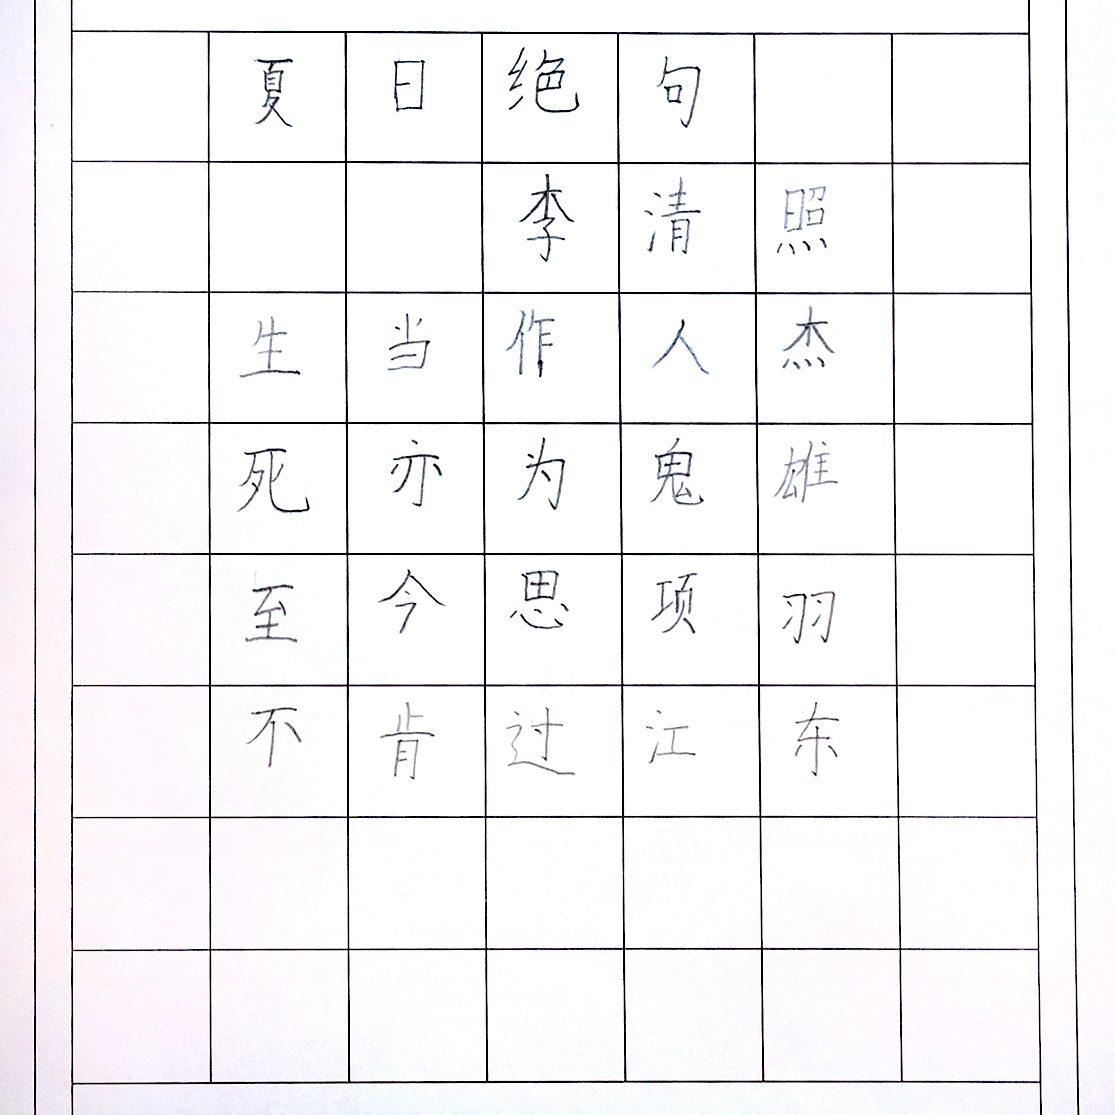 夏日绝句
李清照
生当作人杰
死亦为鬼雄
至今思项羽
不肯过江东